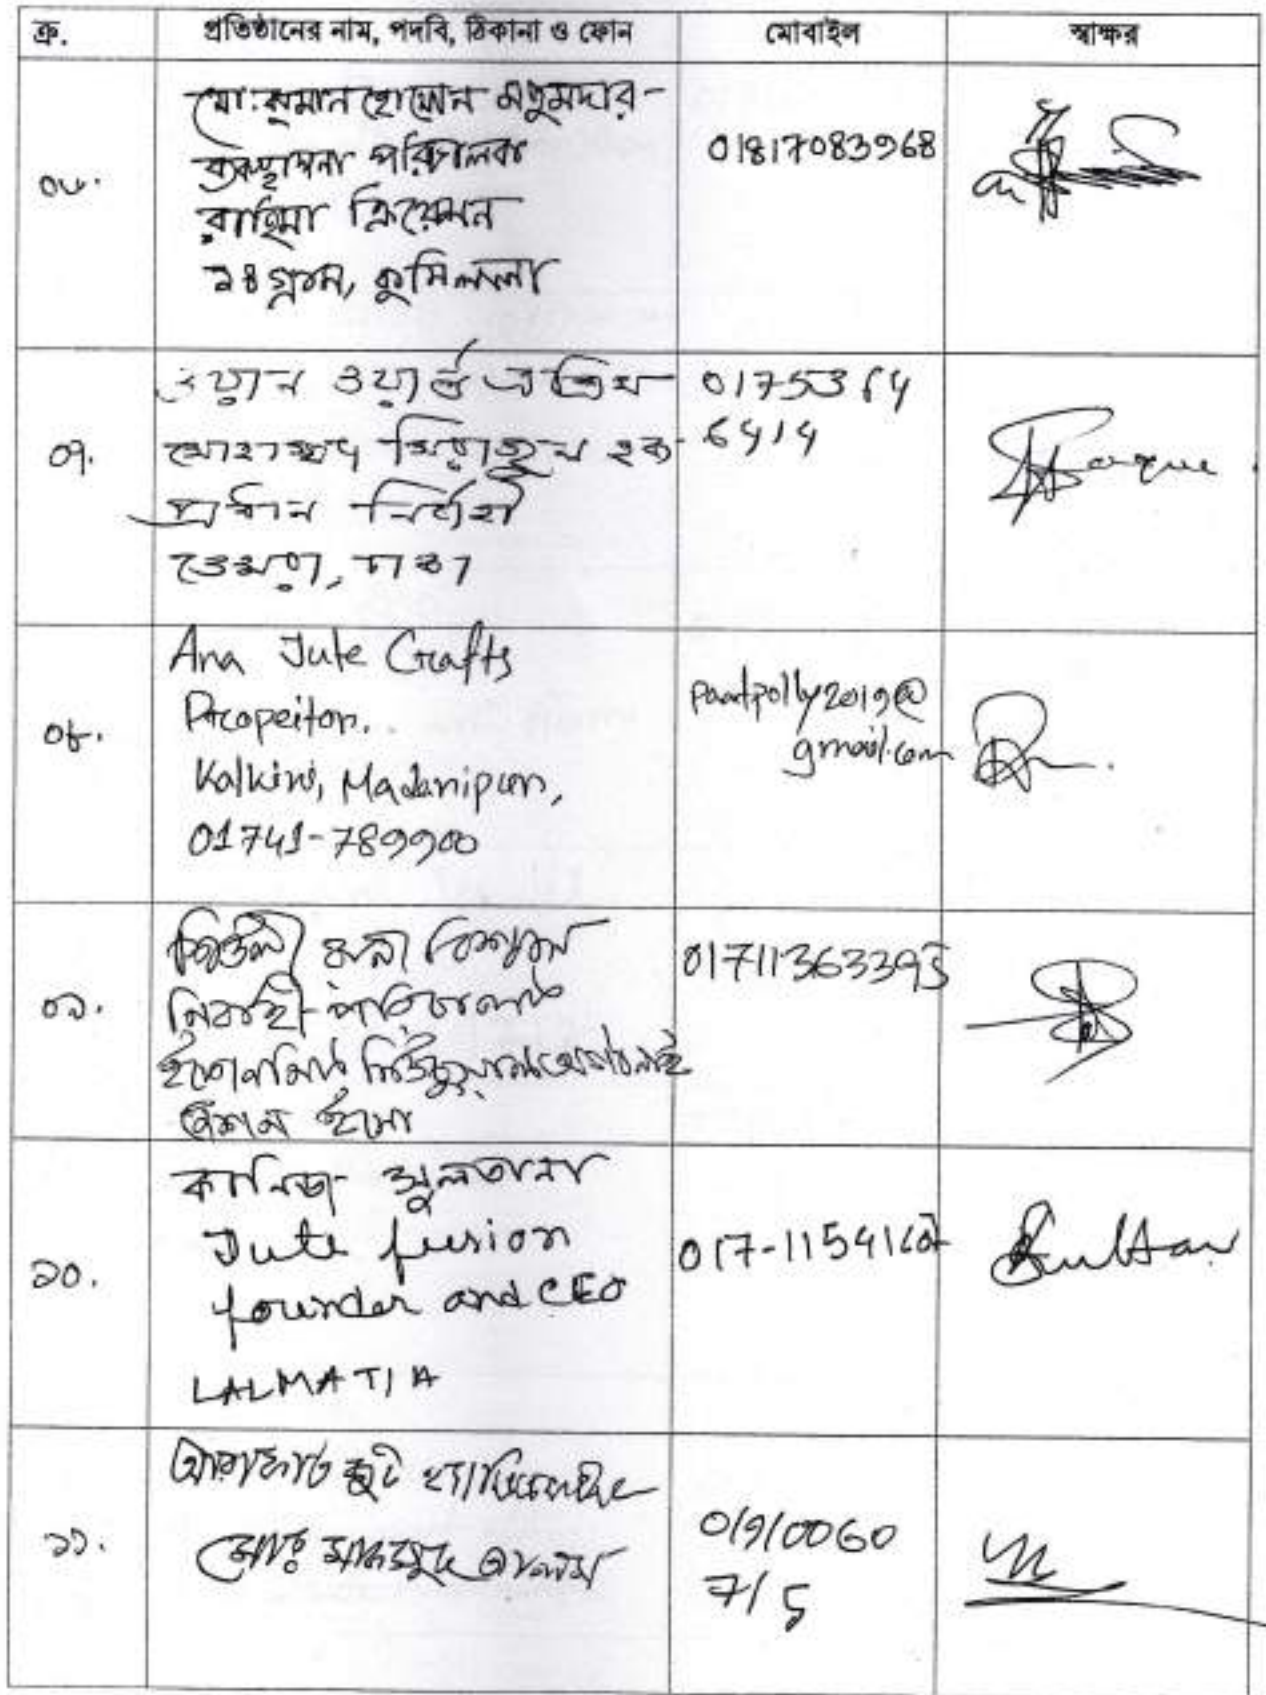 ক্র. প্রতিষ্ঠানের নাম, পদবি, ঠিকানা ও ফোন মোবাইল স্বাক্ষর
০৬.
মো: রুমান হোসেন মজুমদার
ব্যবস্থাপনা পরিচালক
রাহিমা ক্রিয়েশন
১৪গ্রাম, কুমিল্লা
01817083968
০৭.
ওয়ান ওয়ার্ল্ড
মোহাম্মদ সিরাজুল হক
প্রধান নির্বাহী
ডেমরা, ঢাকা
6414
০৮.
Ana Jute Crafts
Propeitor.
Kalkini, Madaripur,
01741-789900
paatpolly2019@
gmail.com
০৯.
রানী বিশ্বাস
নির্বাহী পরিচালক
01711363393
১০.
কানিজ সুলতানা
Jute fusion
founder and CEO
LALMATIA
Sultan
১১.
আরাফাত জুট হ্যান্ডিক্রাফট
মোঃ মাহমুদ আলম
01910060
715